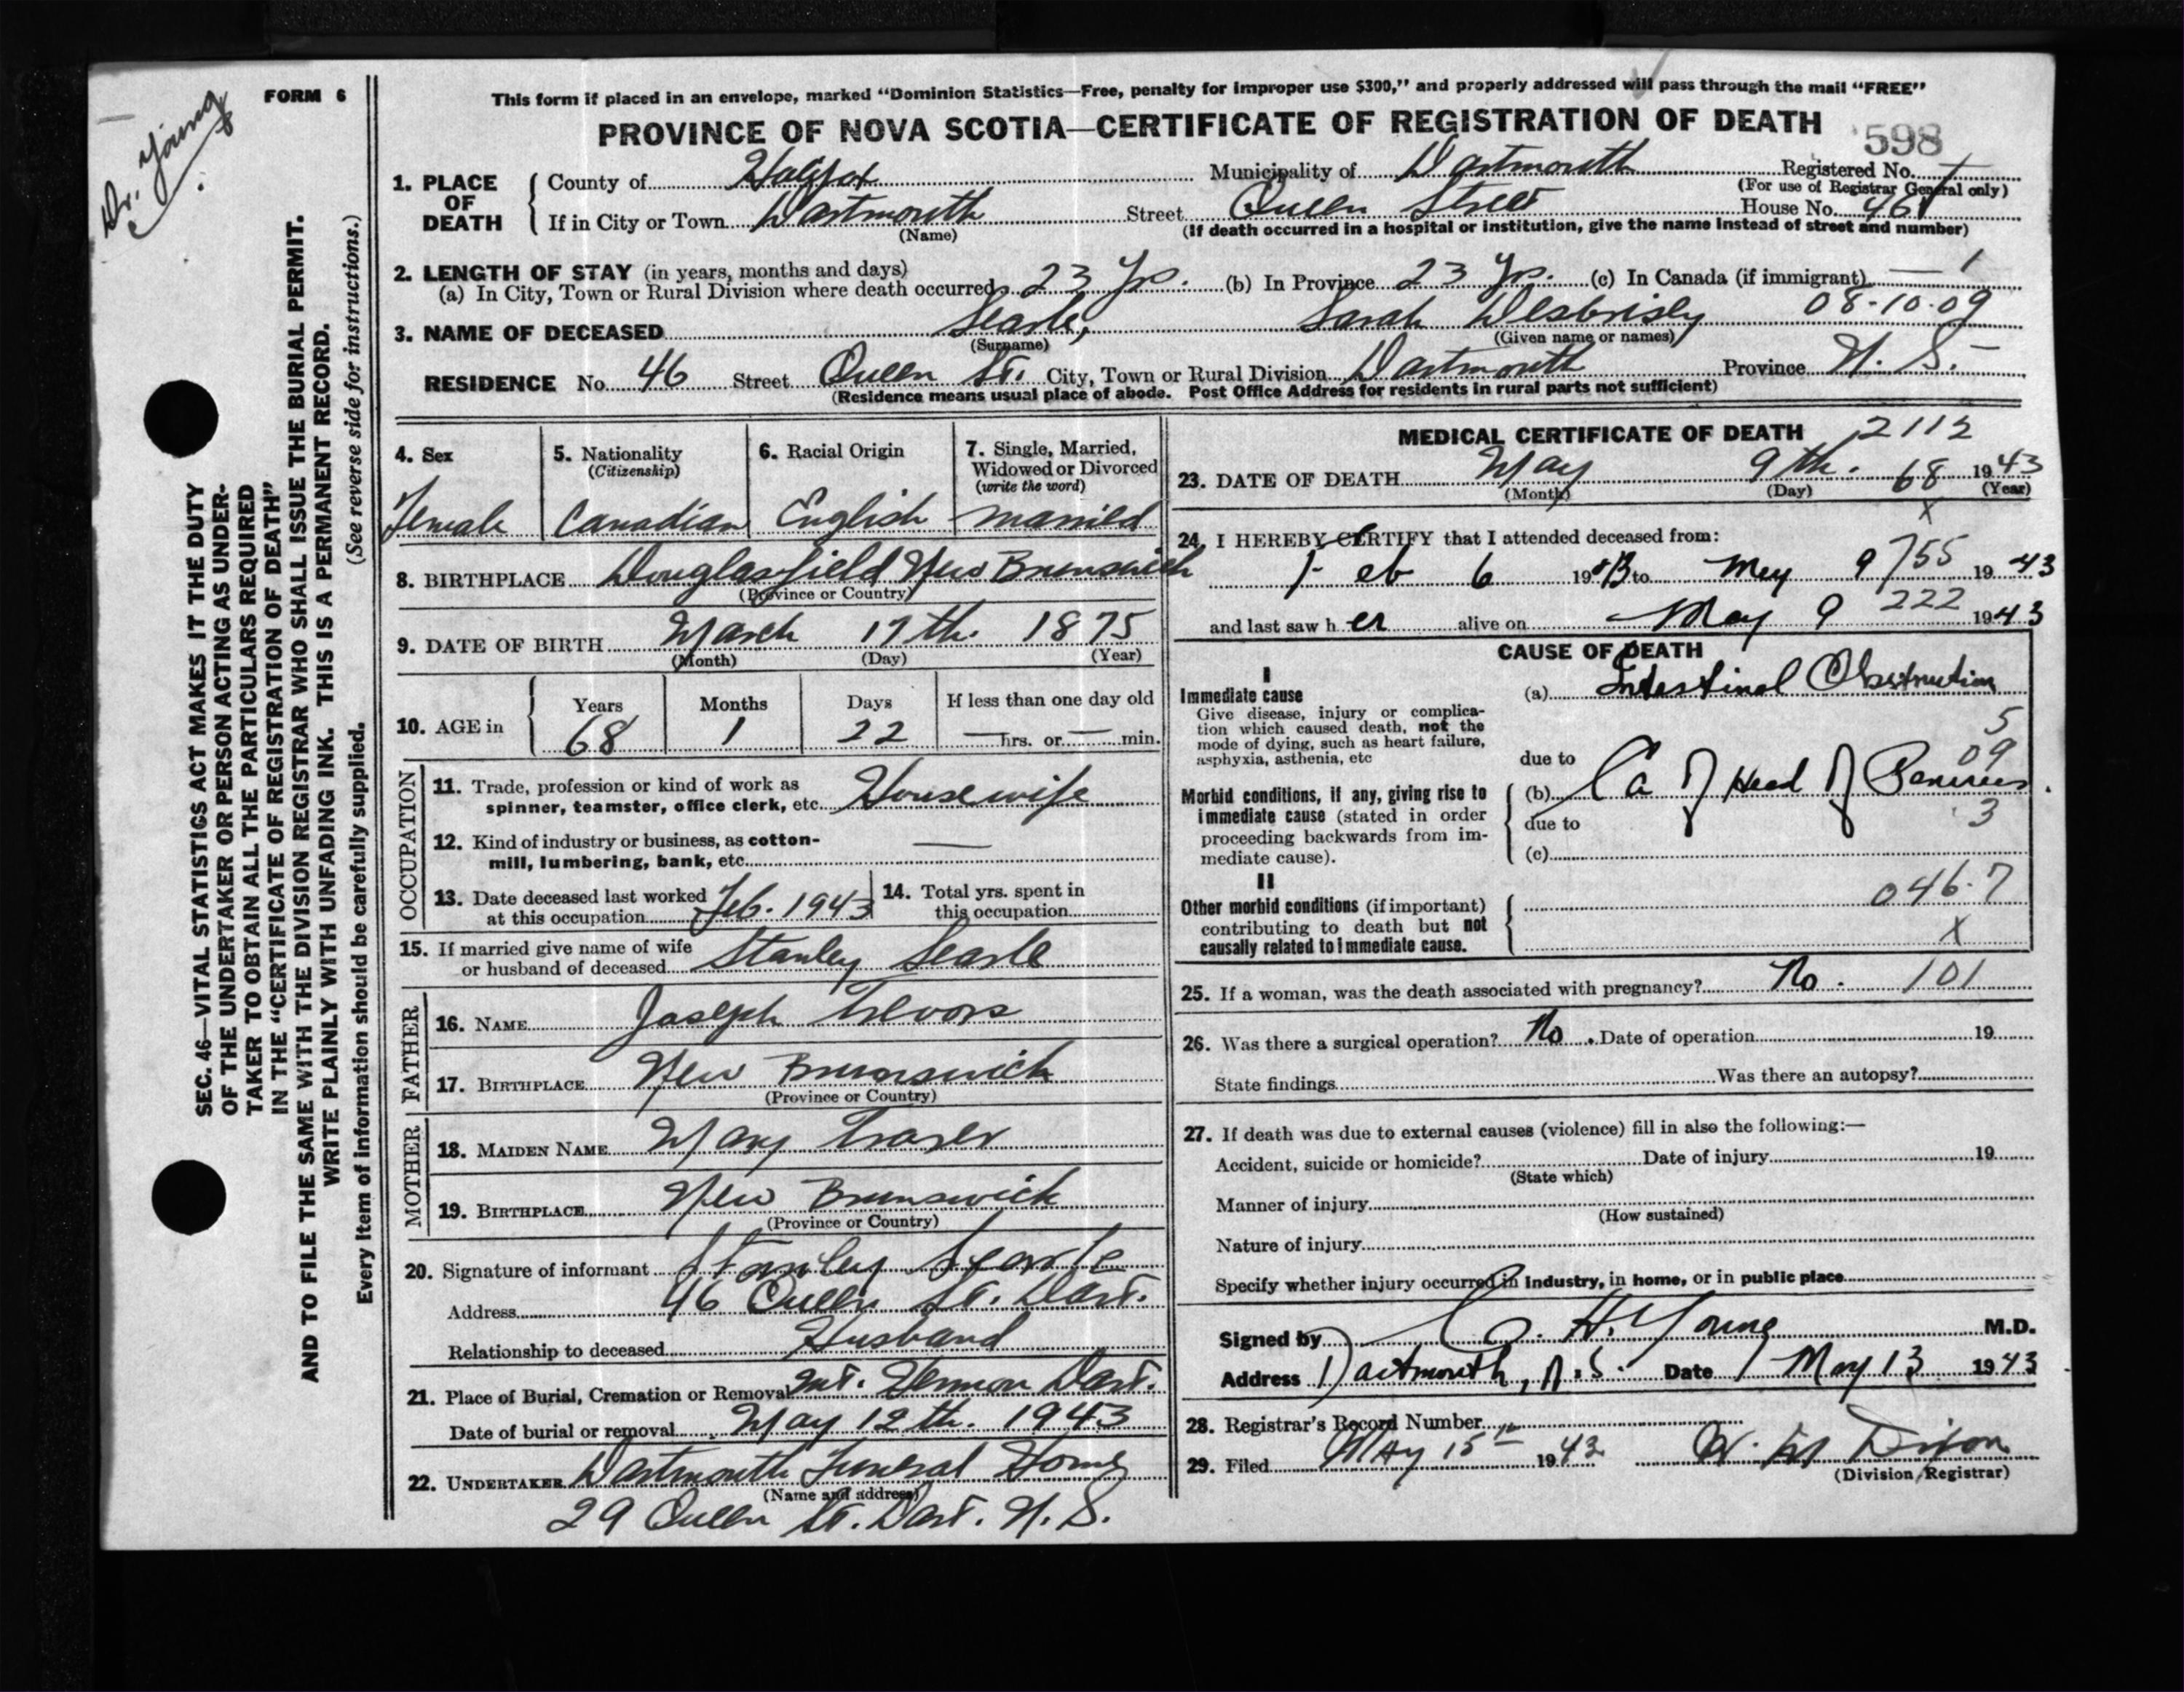 Dr. Young
FORM 6
SEC. 46—VITAL STATISTICS ACT MAKES IT THE DUTY
OF THE UNDERTAKER OR PERSON ACTING AS UNDER-
TAKER TO OBTAIN ALL THE PARTICULARS REQUIRED
IN THE "CERTIFICATE OF REGISTRATION OF DEATH"
AND TO FILE THE SAME WITH THE DIVISION REGISTRAR WHO SHALL ISSUE THE BURIAL PERMIT.
WRITE PLAINLY WITH UNFADING INK. THIS IS A PERMANENT RECORD.
Every item of information should be carefully supplied. (See reverse side for instructions.)
This form if placed in an envelope, marked "Dominion Statistics—Free, penalty for improper use $300," and properly addressed will pass through the mail "FREE"
PROVINCE OF NOVA SCOTIA—CERTIFICATE OF REGISTRATION OF DEATH
598
1. PLACE OF DEATH
County of Halifax Municipality of Dartmouth Registered No.
(For use of Registrar General only)
If in City or Town Dartmouth Street Queen Street House No. 46
(Name) (If death occurred in a hospital or institution, give the name instead of street and number)
2. LENGTH OF STAY (in years, months and days)
(a) In City, Town or Rural Division where death occurred 23 Yrs. (b) In Province 23 Yrs. (c) In Canada (if immigrant) — 1
3. NAME OF DECEASED Searle, Sarah Desbrisly 08-10-09
(Surname) (Given name or names)
RESIDENCE No. 46 Street Queen St. City, Town or Rural Division Dartmouth Province N. S.
(Residence means usual place of abode. Post Office Address for residents in rural parts not sufficient)
4. Sex
Female
5. Nationality
(Citizenship)
Canadian
6. Racial Origin
English
7. Single, Married,
Widowed or Divorced
(write the word)
Married
8. BIRTHPLACE Douglasfield New Brunswick
(Province or Country)
9. DATE OF BIRTH March 17th. 1875
(Month) (Day) (Year)
10. AGE in
Years Months Days If less than one day old
68 1 22 — hrs. or — min.
OCCUPATION
11. Trade, profession or kind of work as
spinner, teamster, office clerk, etc. Housewife
12. Kind of industry or business, as cotton-
mill, lumbering, bank, etc. —
13. Date deceased last worked
at this occupation Feb. 1943
14. Total yrs. spent in
this occupation
15. If married give name of wife
or husband of deceased Stanley Searle
FATHER
16. NAME Joseph Trevors
17. BIRTHPLACE New Brunswick
(Province or Country)
MOTHER
18. MAIDEN NAME Mary Fraser
19. BIRTHPLACE New Brunswick
(Province or Country)
20. Signature of informant Stanley Searle
Address 46 Queen St. Dart.
Relationship to deceased Husband
21. Place of Burial, Cremation or Removal Mt. Hermon Dart.
Date of burial or removal May 12th. 1943
22. UNDERTAKER Dartmouth Funeral Home
(Name and address)
29 Queen St. Dart. N. S.
MEDICAL CERTIFICATE OF DEATH 2112
23. DATE OF DEATH May 9th. 68 1943
(Month) (Day) (Year)
x
24. I HEREBY CERTIFY that I attended deceased from:
Feb 6 1943 to May 9 755 1943
and last saw her alive on May 9 222 1943
CAUSE OF DEATH
I
Immediate cause
Give disease, injury or complica-
tion which caused death, not the
mode of dying, such as heart failure,
asphyxia, asthenia, etc
(a) Intestinal Obstruction
5
09
due to
Morbid conditions, if any, giving rise to
immediate cause (stated in order
proceeding backwards from im-
mediate cause).
(b) Ca of Head of Pancreas.
due to 3
(c)
II
Other morbid conditions (if important)
contributing to death but not
causally related to immediate cause.
046.7
x
25. If a woman, was the death associated with pregnancy? No. 101
26. Was there a surgical operation? No. Date of operation 19
State findings Was there an autopsy?
27. If death was due to external causes (violence) fill in also the following:—
Accident, suicide or homicide? Date of injury 19
(State which)
Manner of injury
(How sustained)
Nature of injury
Specify whether injury occurred in industry, in home, or in public place
Signed by H. Young M.D.
Address Dartmouth, N.S. Date May 13 1943
28. Registrar's Record Number
29. Filed May 15th 1943 Dixon
(Division Registrar)